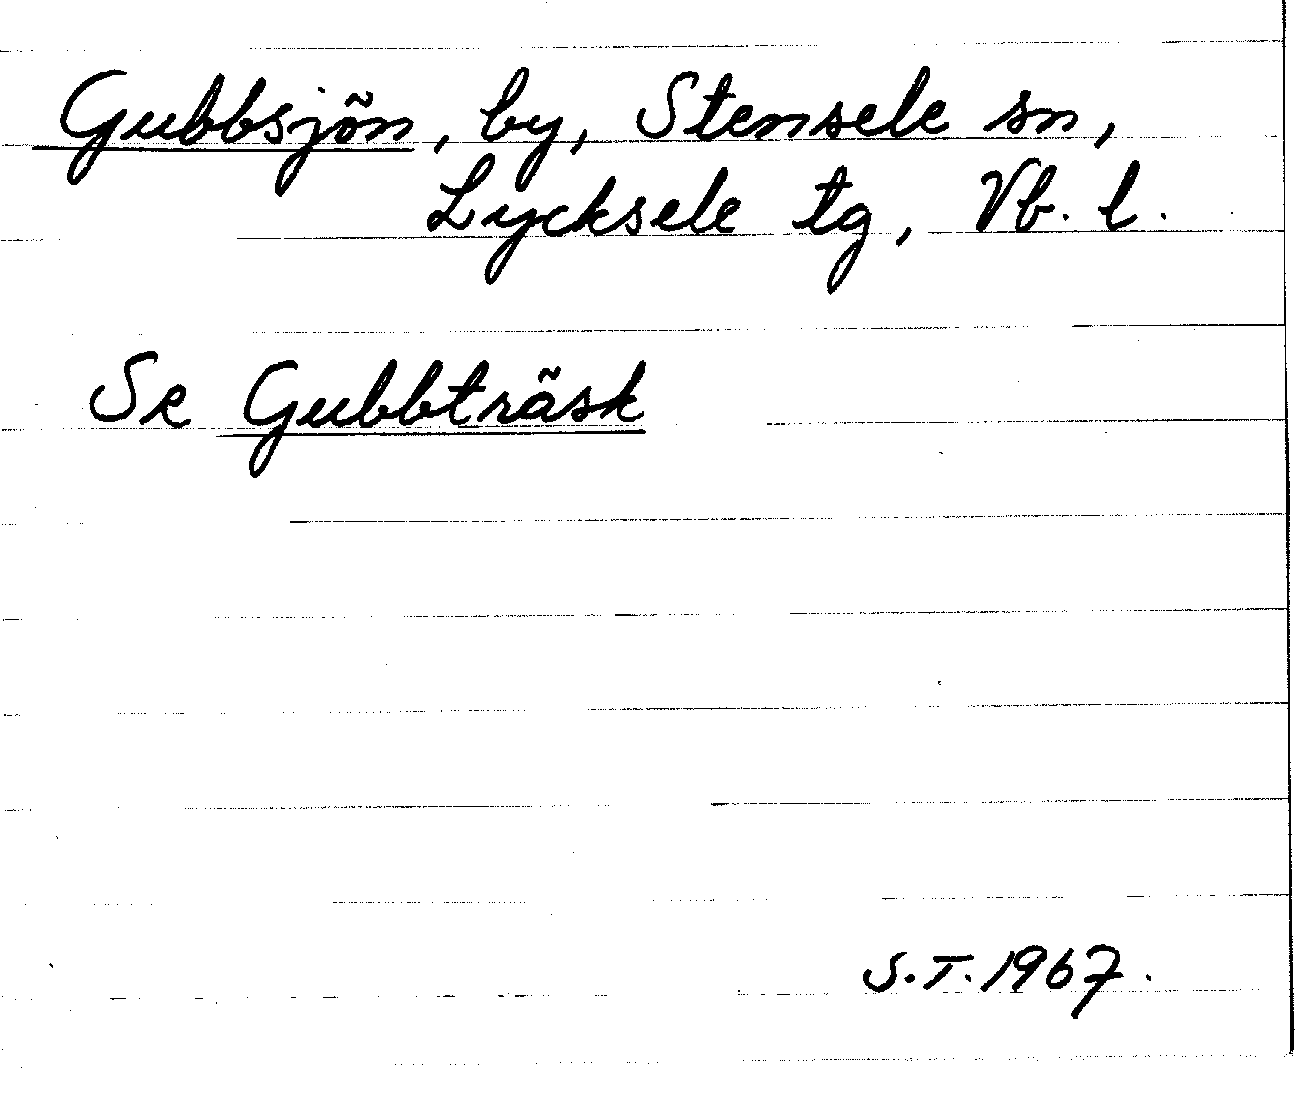 Gubbsjön, by, Stensele sn,
Lycksele tg, Vb. l.
Se Gubbträsk
S.T. 1967.